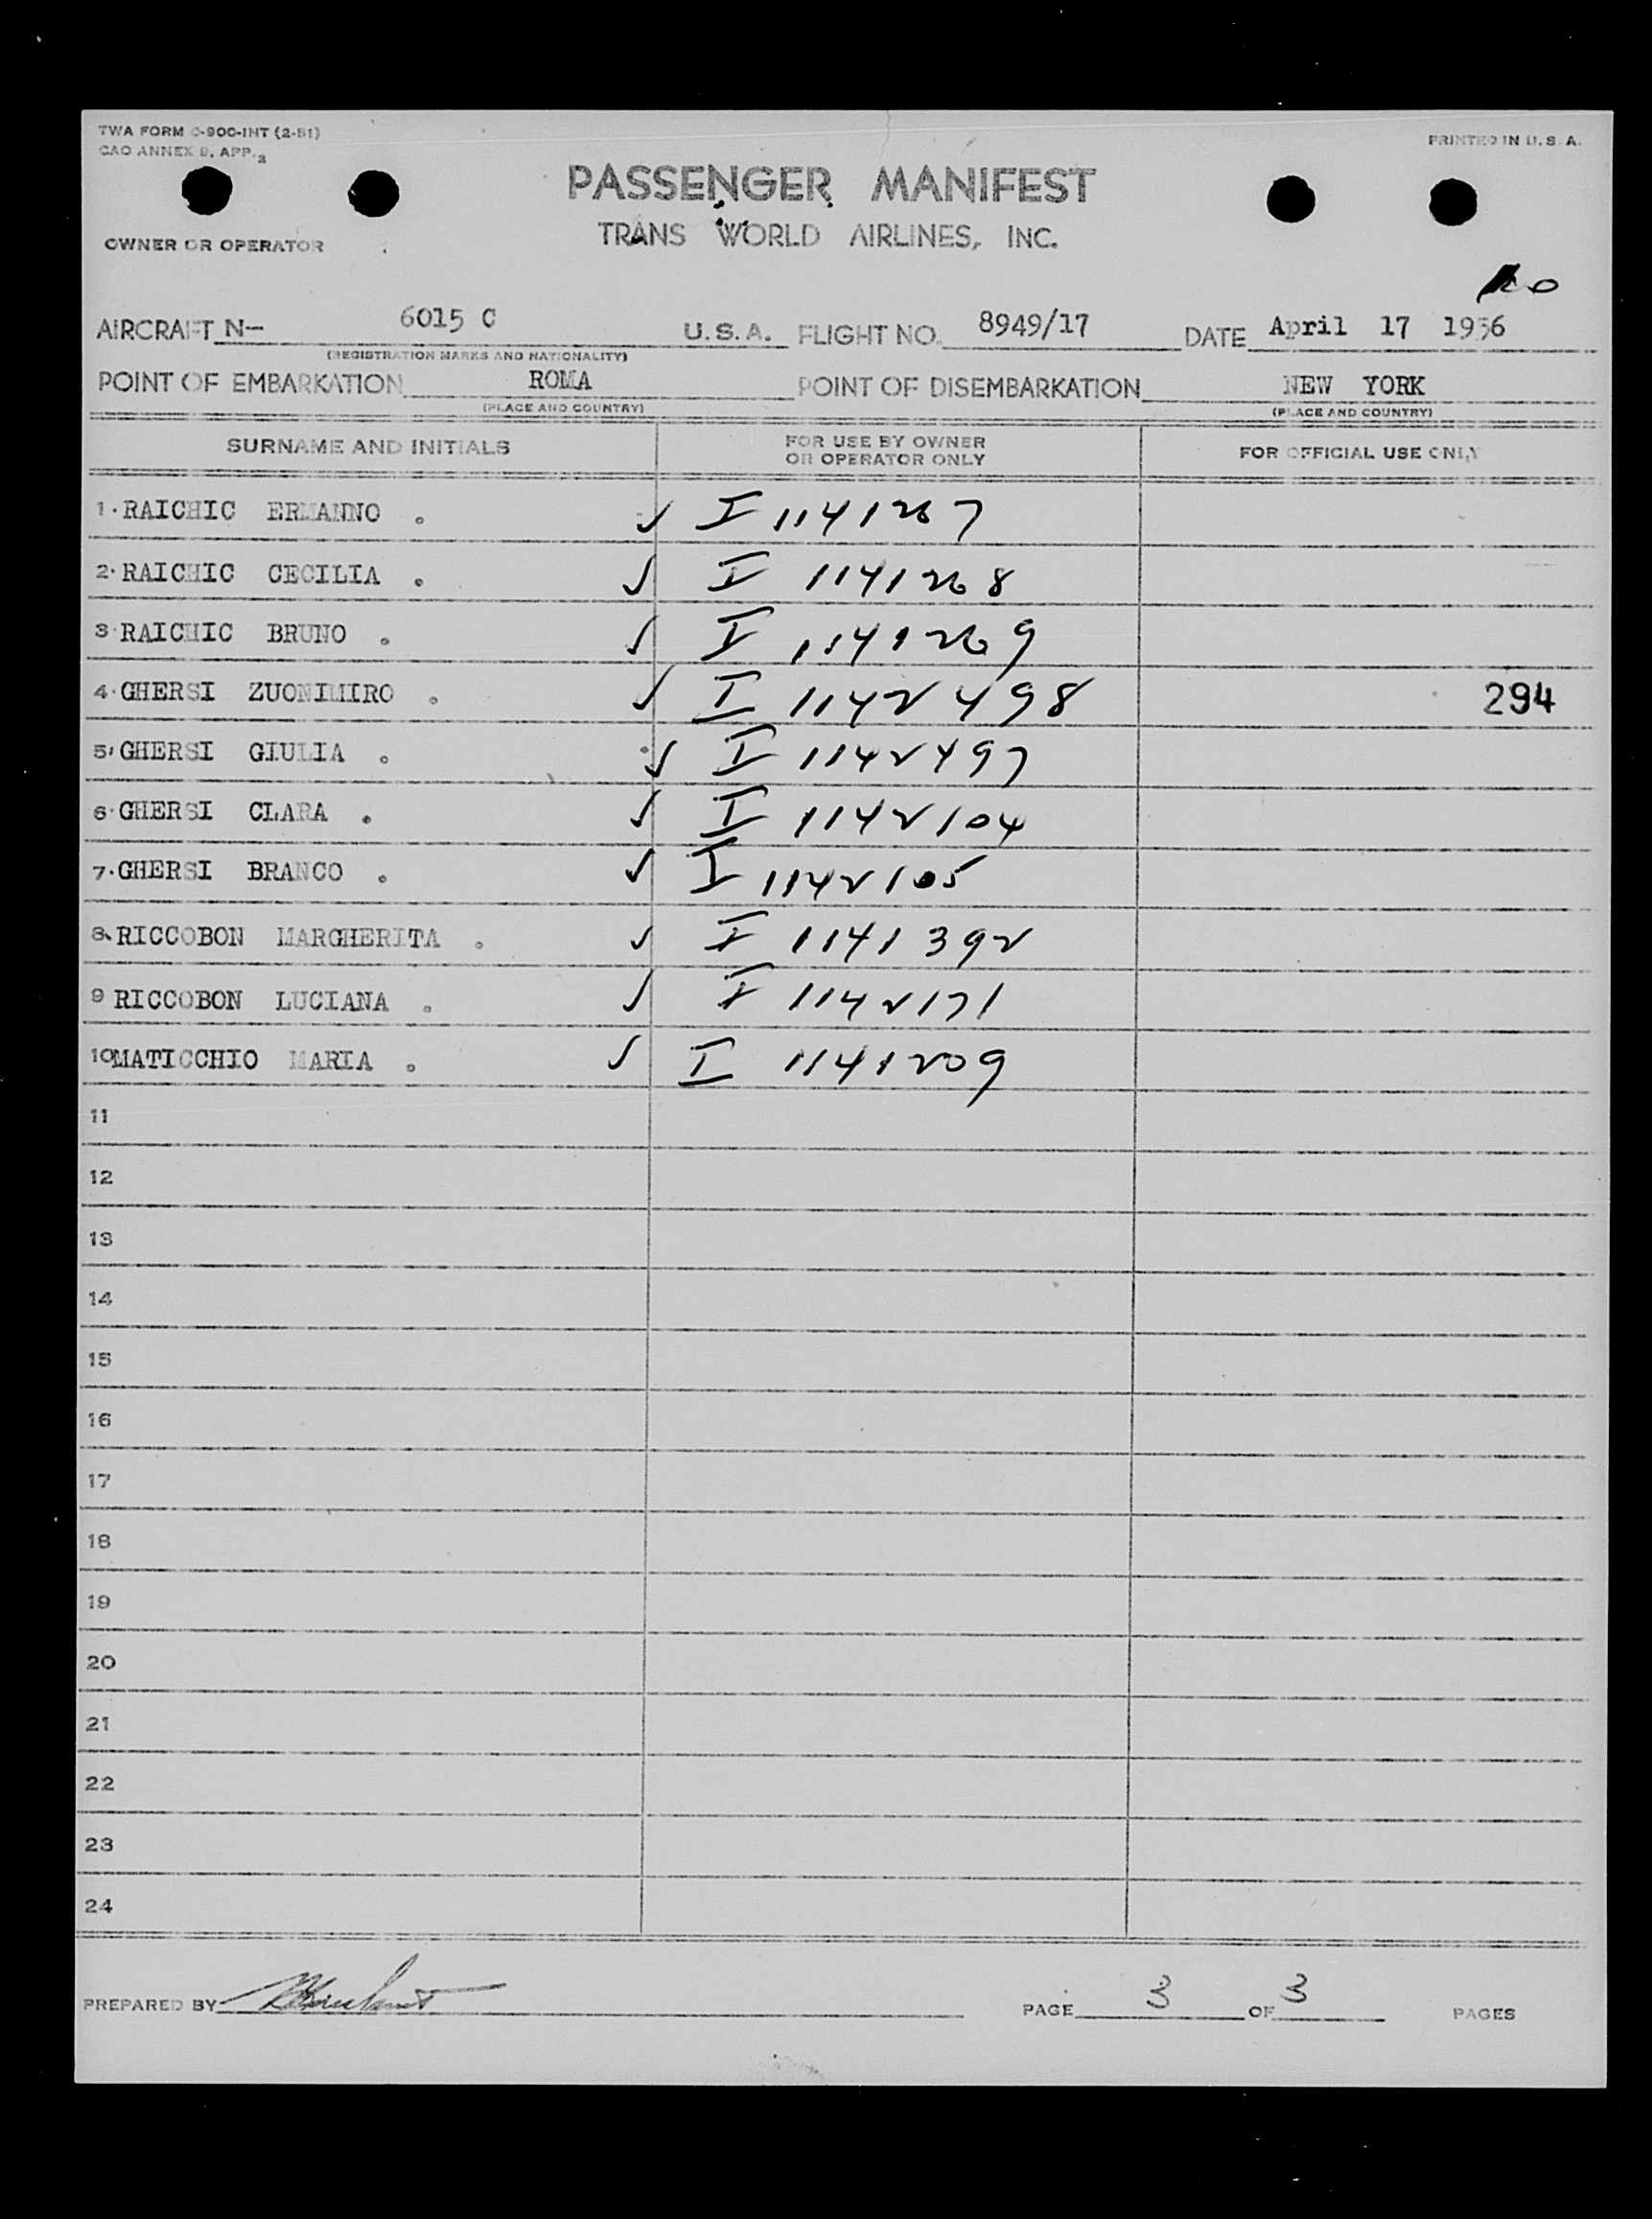 TWA FORM O-900-INT (2-51)
CAO ANNEX 9, APP. 2
PRINTED IN U. S. A.
PASSENGER MANIFEST
TRANS WORLD AIRLINES, INC.
OWNER OR OPERATOR
AIRCRAFT N- 6015 C U. S. A. FLIGHT NO. 8949/17 DATE April 17 1956
(REGISTRATION MARKS AND NATIONALITY)
POINT OF EMBARKATION ROMA POINT OF DISEMBARKATION NEW YORK
(PLACE AND COUNTRY) (PLACE AND COUNTRY)
SURNAME AND INITIALS FOR USE BY OWNER OR OPERATOR ONLY FOR OFFICIAL USE ONLY
1. RAICHIC ERMANNO . ✓ I 1141267
2. RAICHIC CECILIA . ✓ I 1141268
3 RAICHIC BRUNO . ✓ I 1141269
4. GHERSI ZUONIMIRO . ✓ I 1142498 294
5. GHERSI GIULIA . ✓ I 1142497
6. GHERSI CLARA . ✓ I 1142104
7. GHERSI BRANCO . ✓ I 1142105
8. RICCOBON MARGHERITA . ✓ I 1141392
9 RICCOBON LUCIANA . ✓ I 1142171
10 MATICCHIO MARIA . ✓ I 1141209
11
12
13
14
15
16
17
18
19
20
21
22
23
24
PREPARED BY PAGE 3 OF 3 PAGES